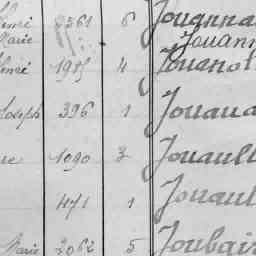 Henri 2361 6 Jouanna
Marie Jouann
Henri 1915 4 Jouanot
Joseph 396 1 Jouaua
1090 3 Jouaull
471 1 Jouaul
Marie 2062 5 Joubair